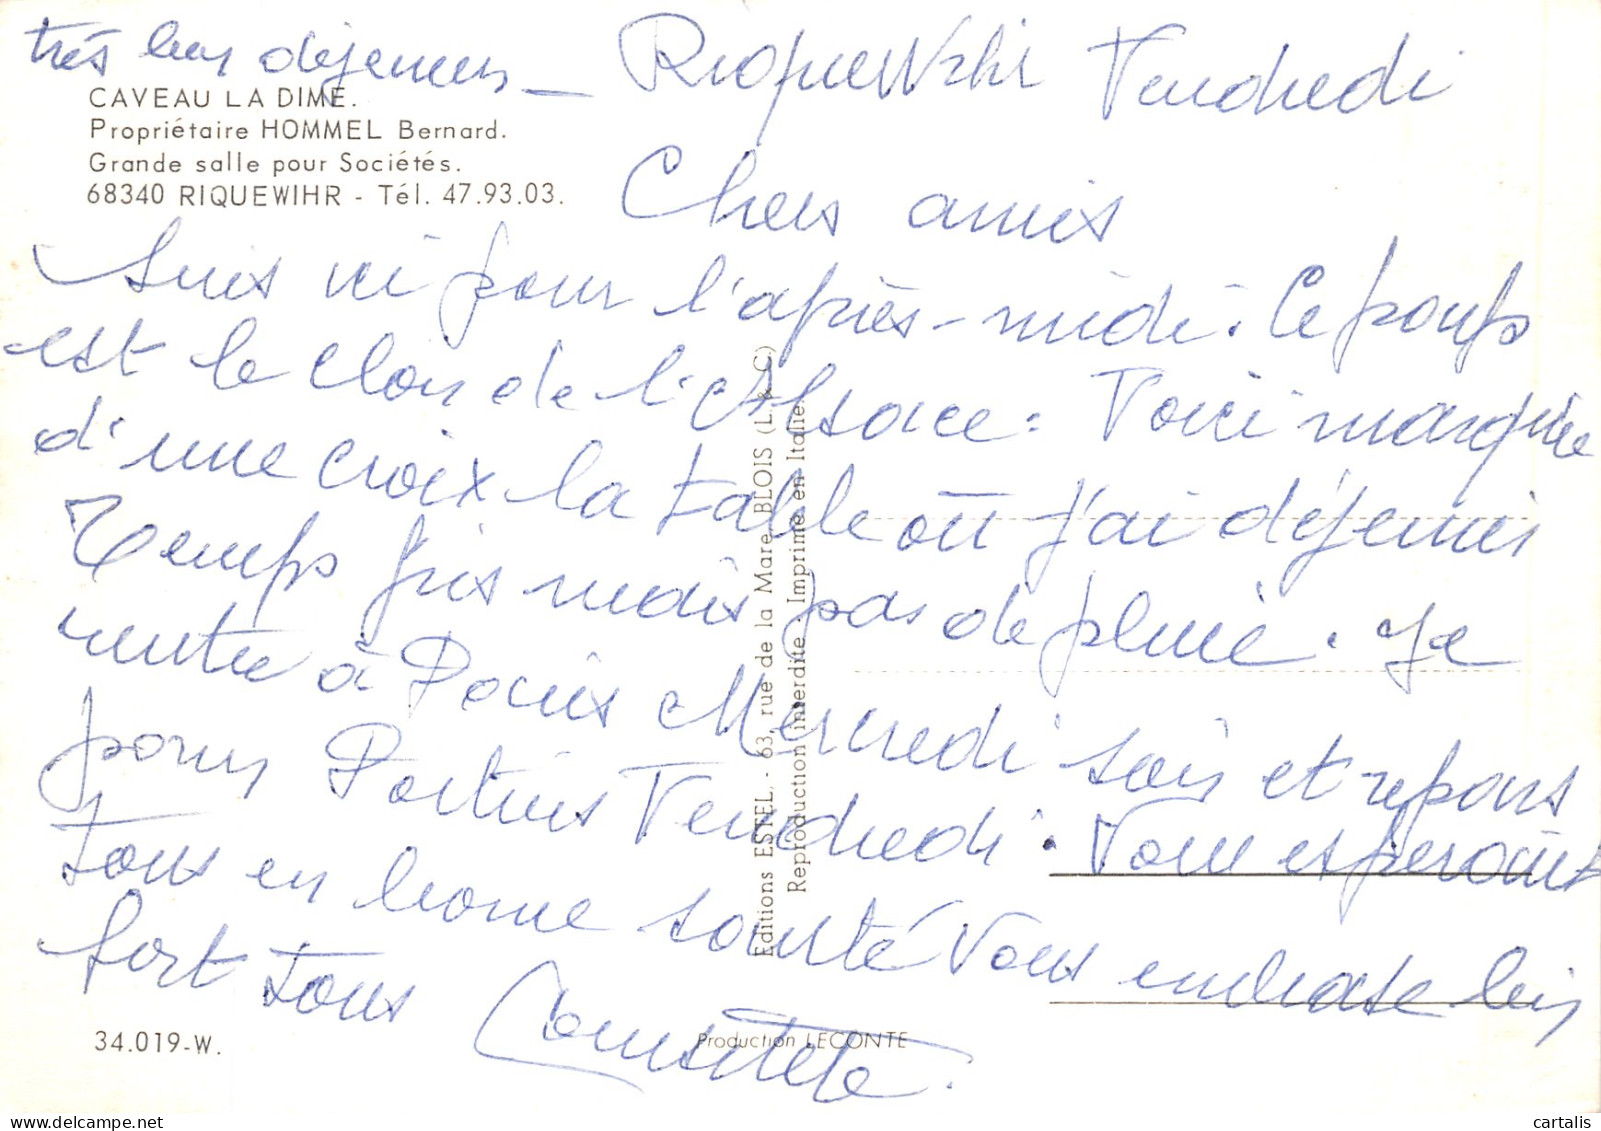 très bien déjeuner — Riquewihr Vendredi
CAVEAU LA DIME.
Propriétaire HOMMEL Bernard.
Grande salle pour Sociétés.
68340 RIQUEWIHR - Tél. 47.93.03.
Chers amis
Suis ici pour l'après-midi. Ce
est le clou de l'Alsace. Voici marquée
d'une croix la table où j'ai déjeuner
Temps gris mais pas de pluie. Je
rentre à Paris Mercredi soir et repars
pour Vendredi. Vous esperant
tous en bonne santé Vous embrasse bien
fort tous
Editions ESTEL. - 63, rue de la Mare, BLOIS (L. & C)
Reproduction interdite. Imprimé en Italie.
34.019-W.
Production LECONTE
cartalis
www.delcampe.net